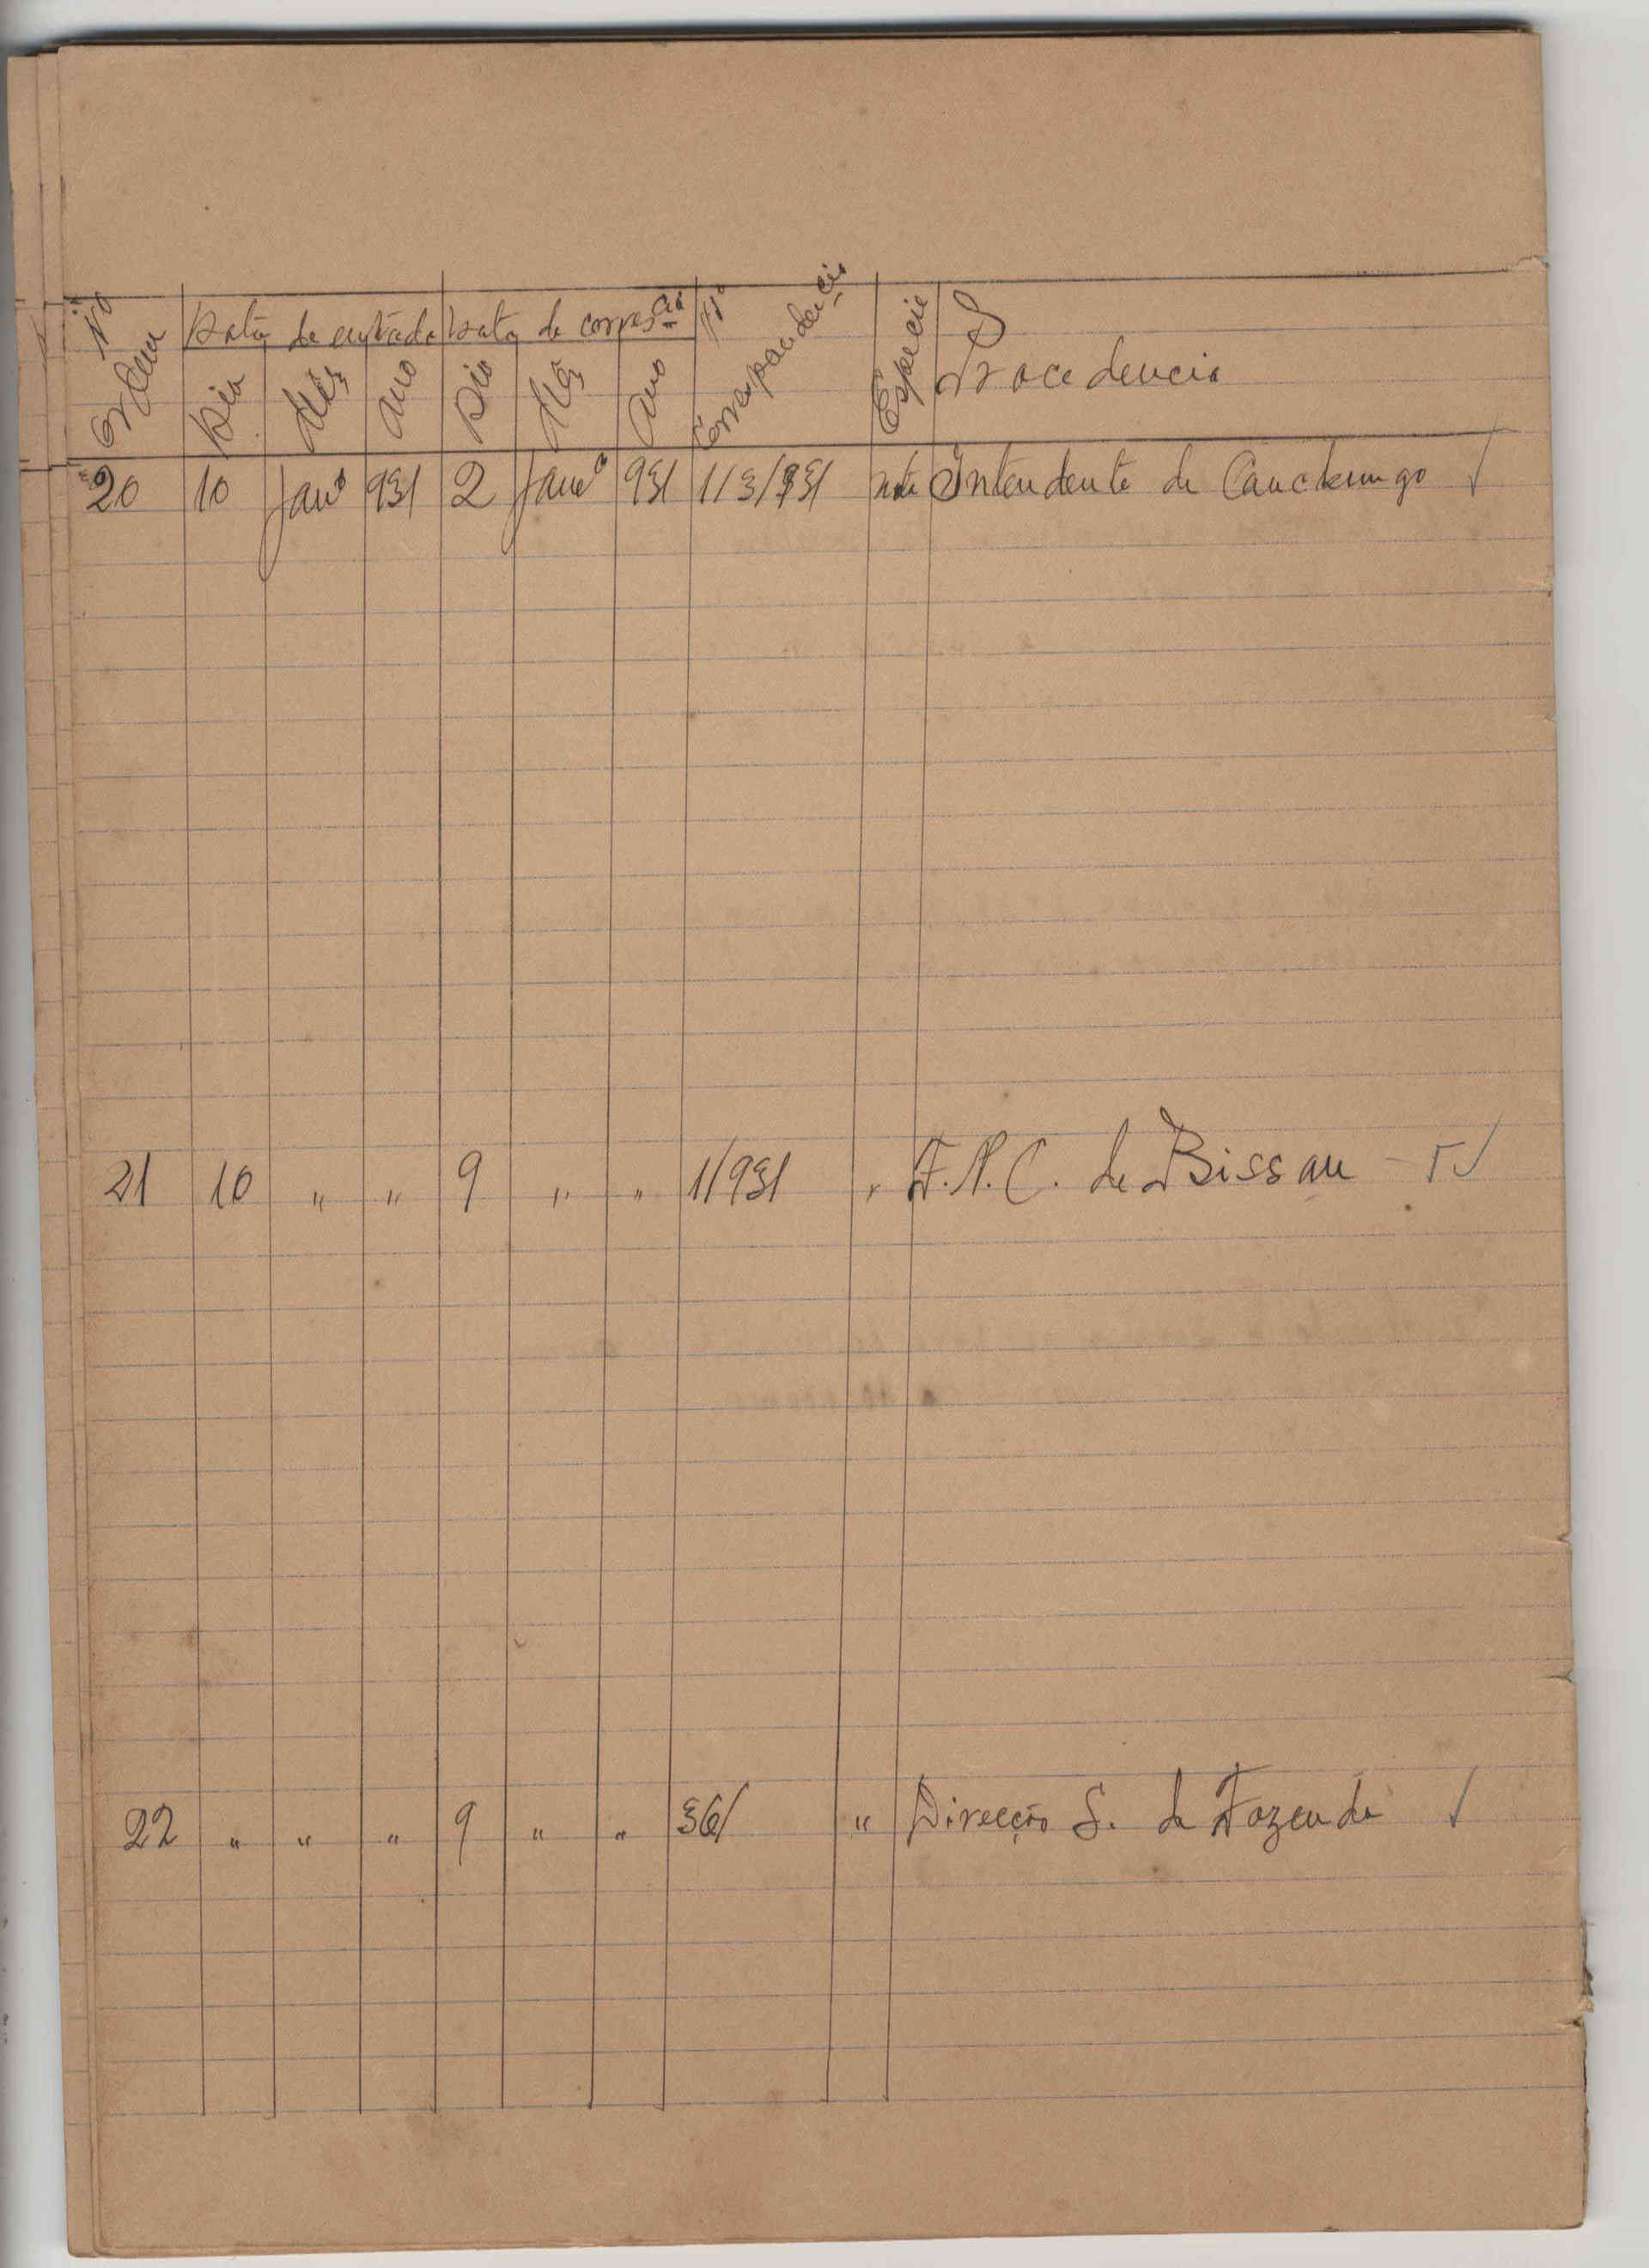 Nº Ordem Data de entrada Data de corres.cia Nº Correspondencia Especie Procedencia
Dia Mês Ano Dia Mês Ano
20 10 Janº 931 2 Janeº 931 1/3/931 nota Intendente de Canchungo ✓
21 10 " " 9 " " 1/931 " A.P.C. de Bissau - ✓
22 " " " 9 " " 36/ " Direcção S. de Fazenda ✓